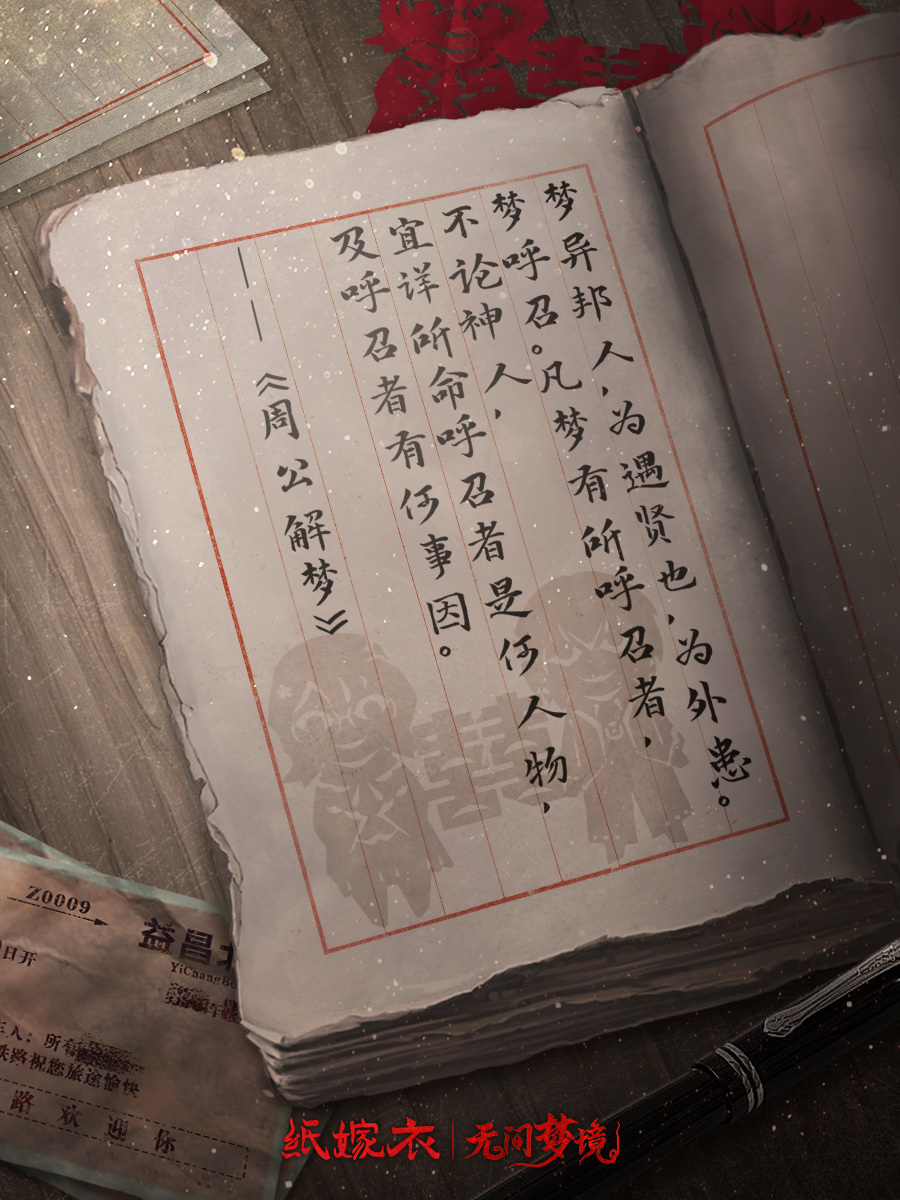 梦异邦人，为遇贤也，为外患。
梦呼召。凡梦有所呼召者，
不论神人，
宜详所命呼召者是何人物，
及呼召者有何事因。
——《周公解梦》
Z0009
益昌
YiChang
日开
所有
铁路祝您旅途愉快
路欢迎你
纸嫁衣|无间梦境